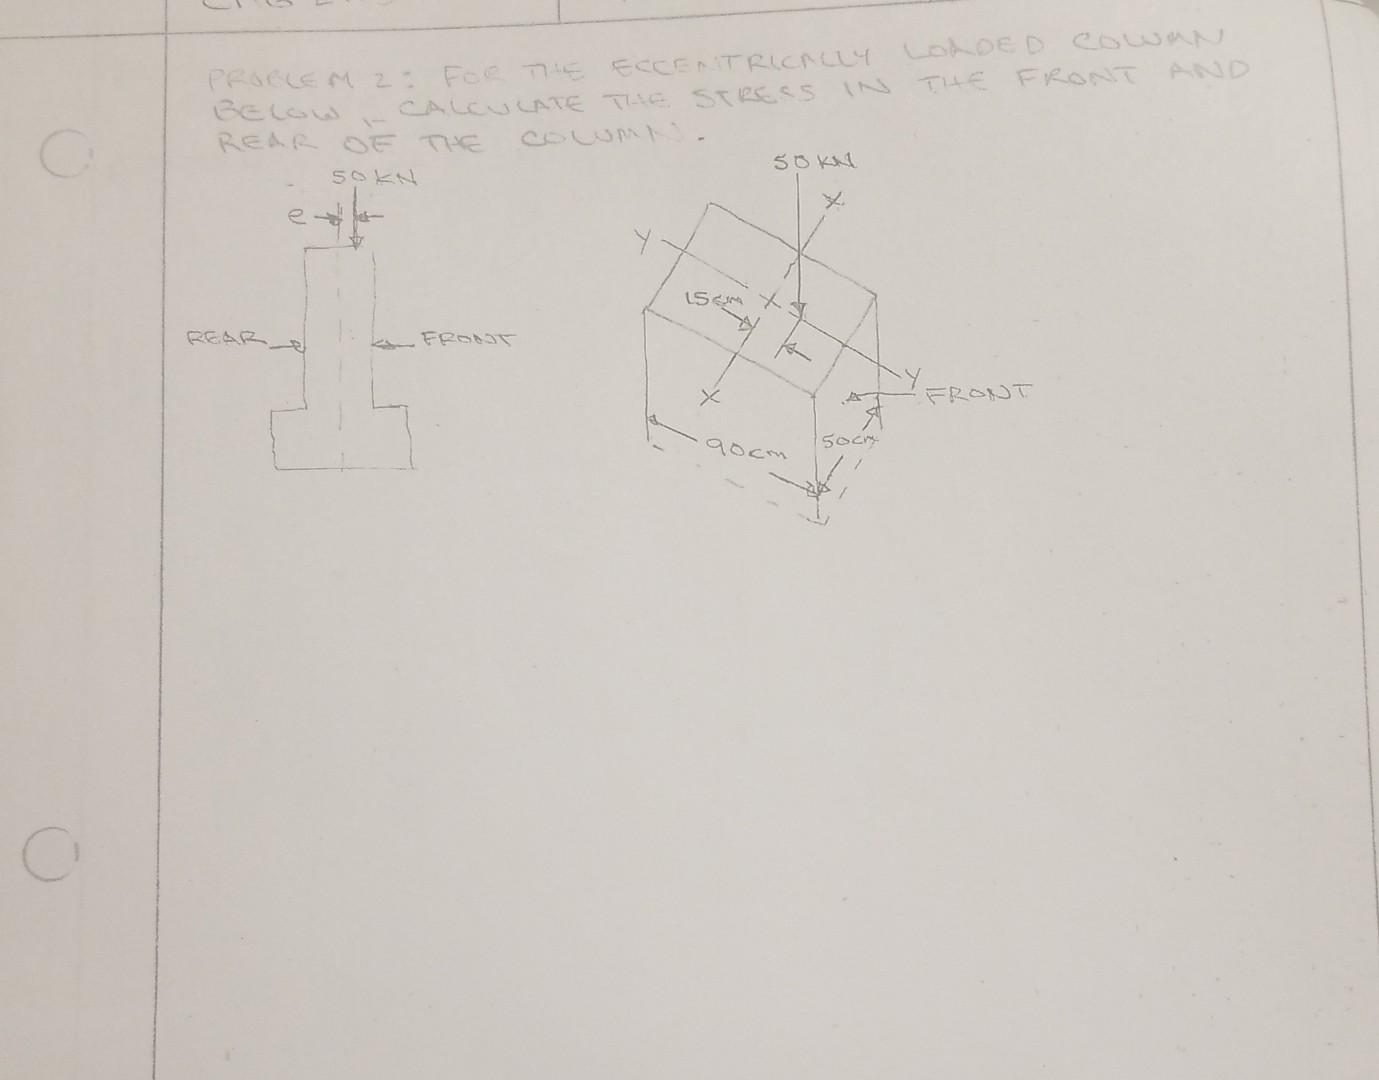 PROBLEM 2: FOR THE ECCENTRICALLY LOADED COLUMN
BELOW, CALCULATE THE STRESS IN THE FRONT AND
REAR OF THE COLUMN.
50 KN
50 KN
e
X
Y
15cm
X
REAR
FRONT
Y
X
FRONT
90cm
50cm